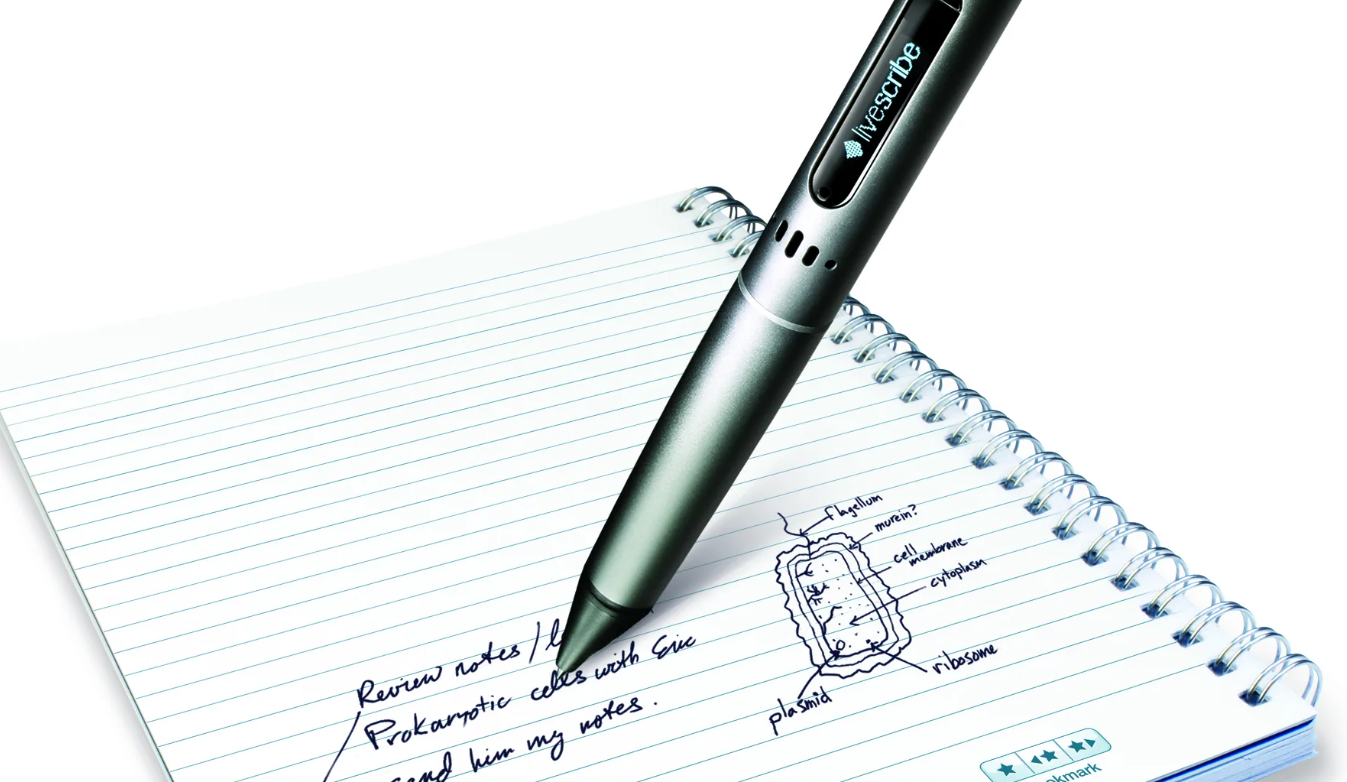 livescribe
flagellum
murein?
cell
membrane
cytoplasm
ribosome
plasmid
Review notes /
Prokaryotic cells with Eric
him my notes.